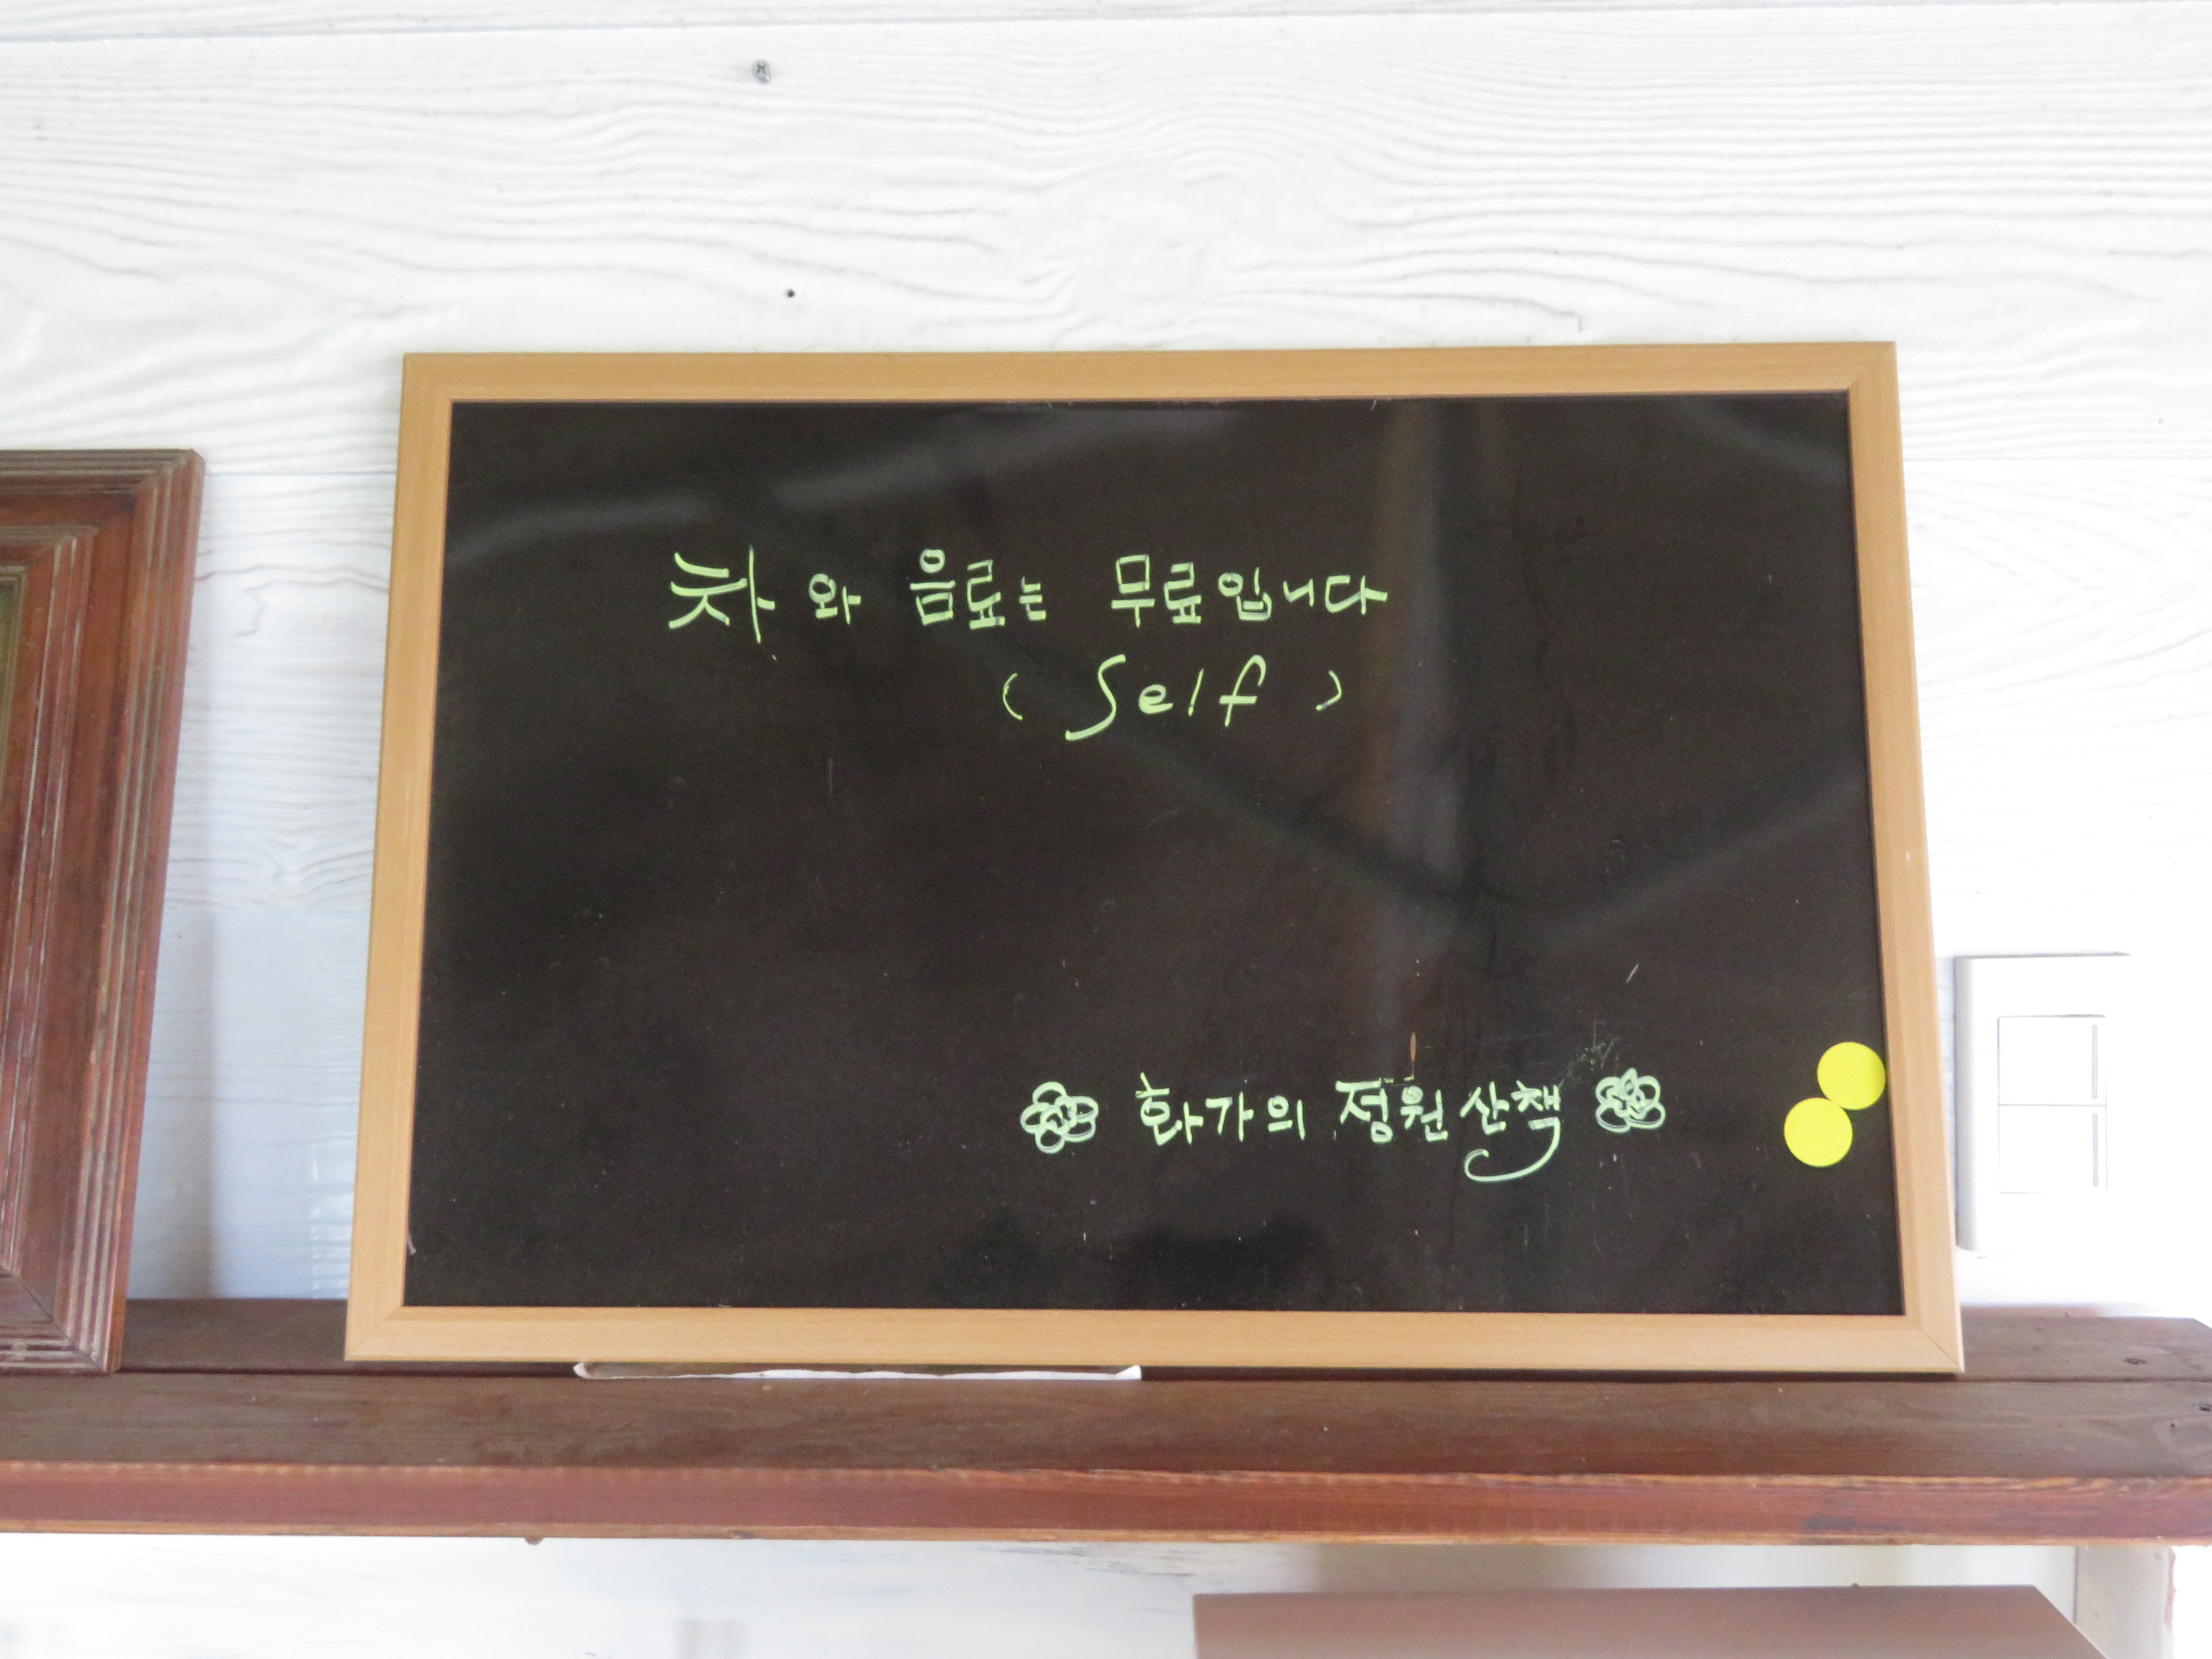 차와 음료는 무료입니다
(Self)
화가의 정원산책